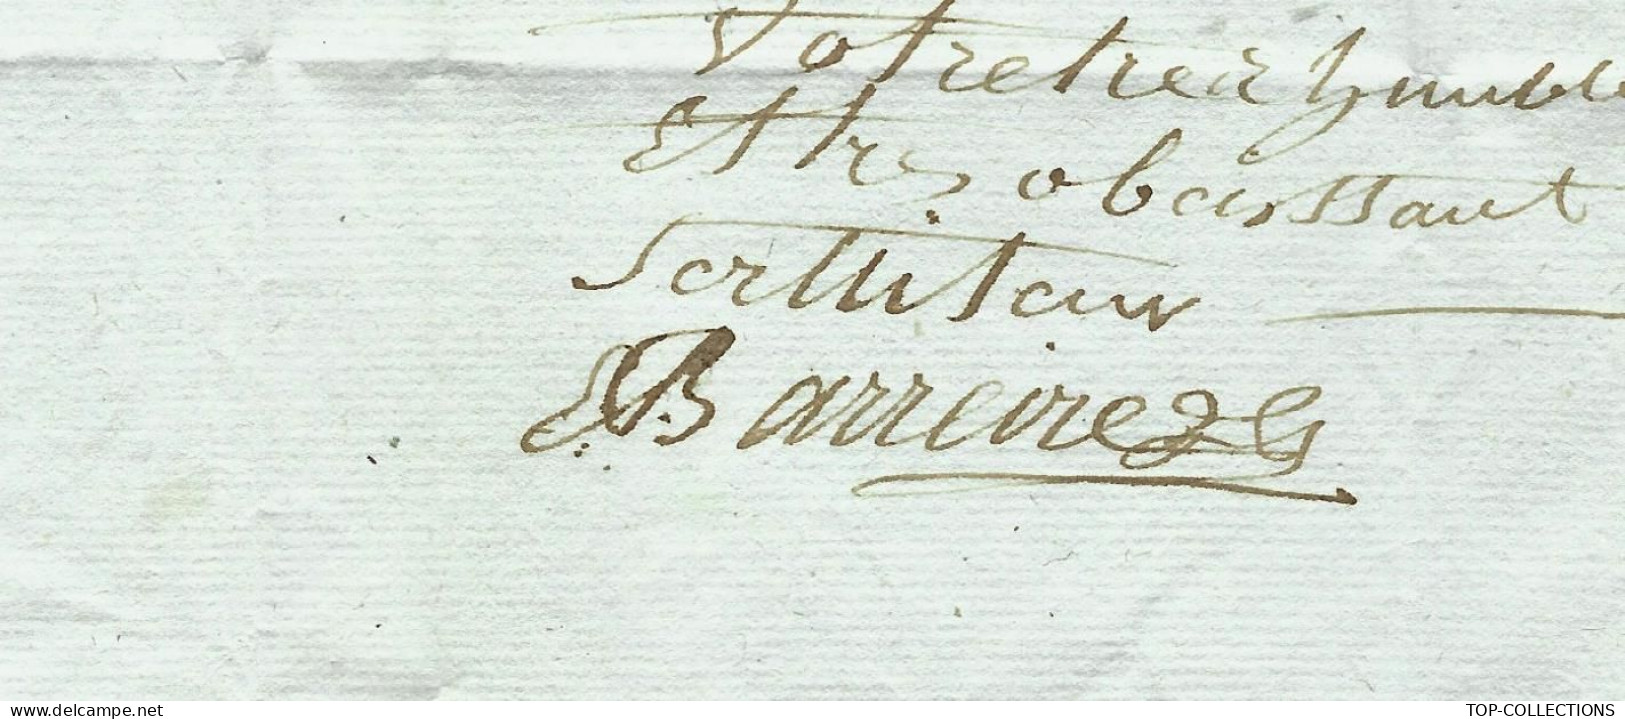 Votre tres humble
Et tres obeissant
serviteur
Barreire
www.delcampe.net
TOP-COLLECTIONS